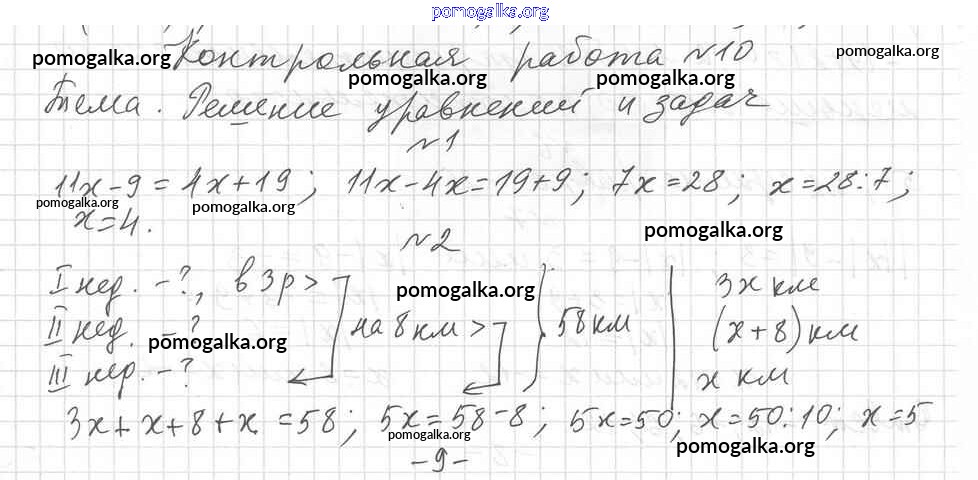 pomogalka.org
Контрольная работа №10
pomogalka.org pomogalka.org pomogalka.org pomogalka.org
Тема. Решение уравнений и задач
№1
11x-9=4x+19; 11x-4x=19+9; 7x=28; x=28:7;
pomogalka.org pomogalka.org
x=4.
pomogalka.org
№2
I нед. -?, в 3р> 3x км
pomogalka.org
II нед. -? на 8 км> 58 км (x+8) км
pomogalka.org
III нер. -? x км
3x+x+8+x=58; 5x=58-8; 5x=50; x=50:10; x=5
pomogalka.org pomogalka.org
-9-